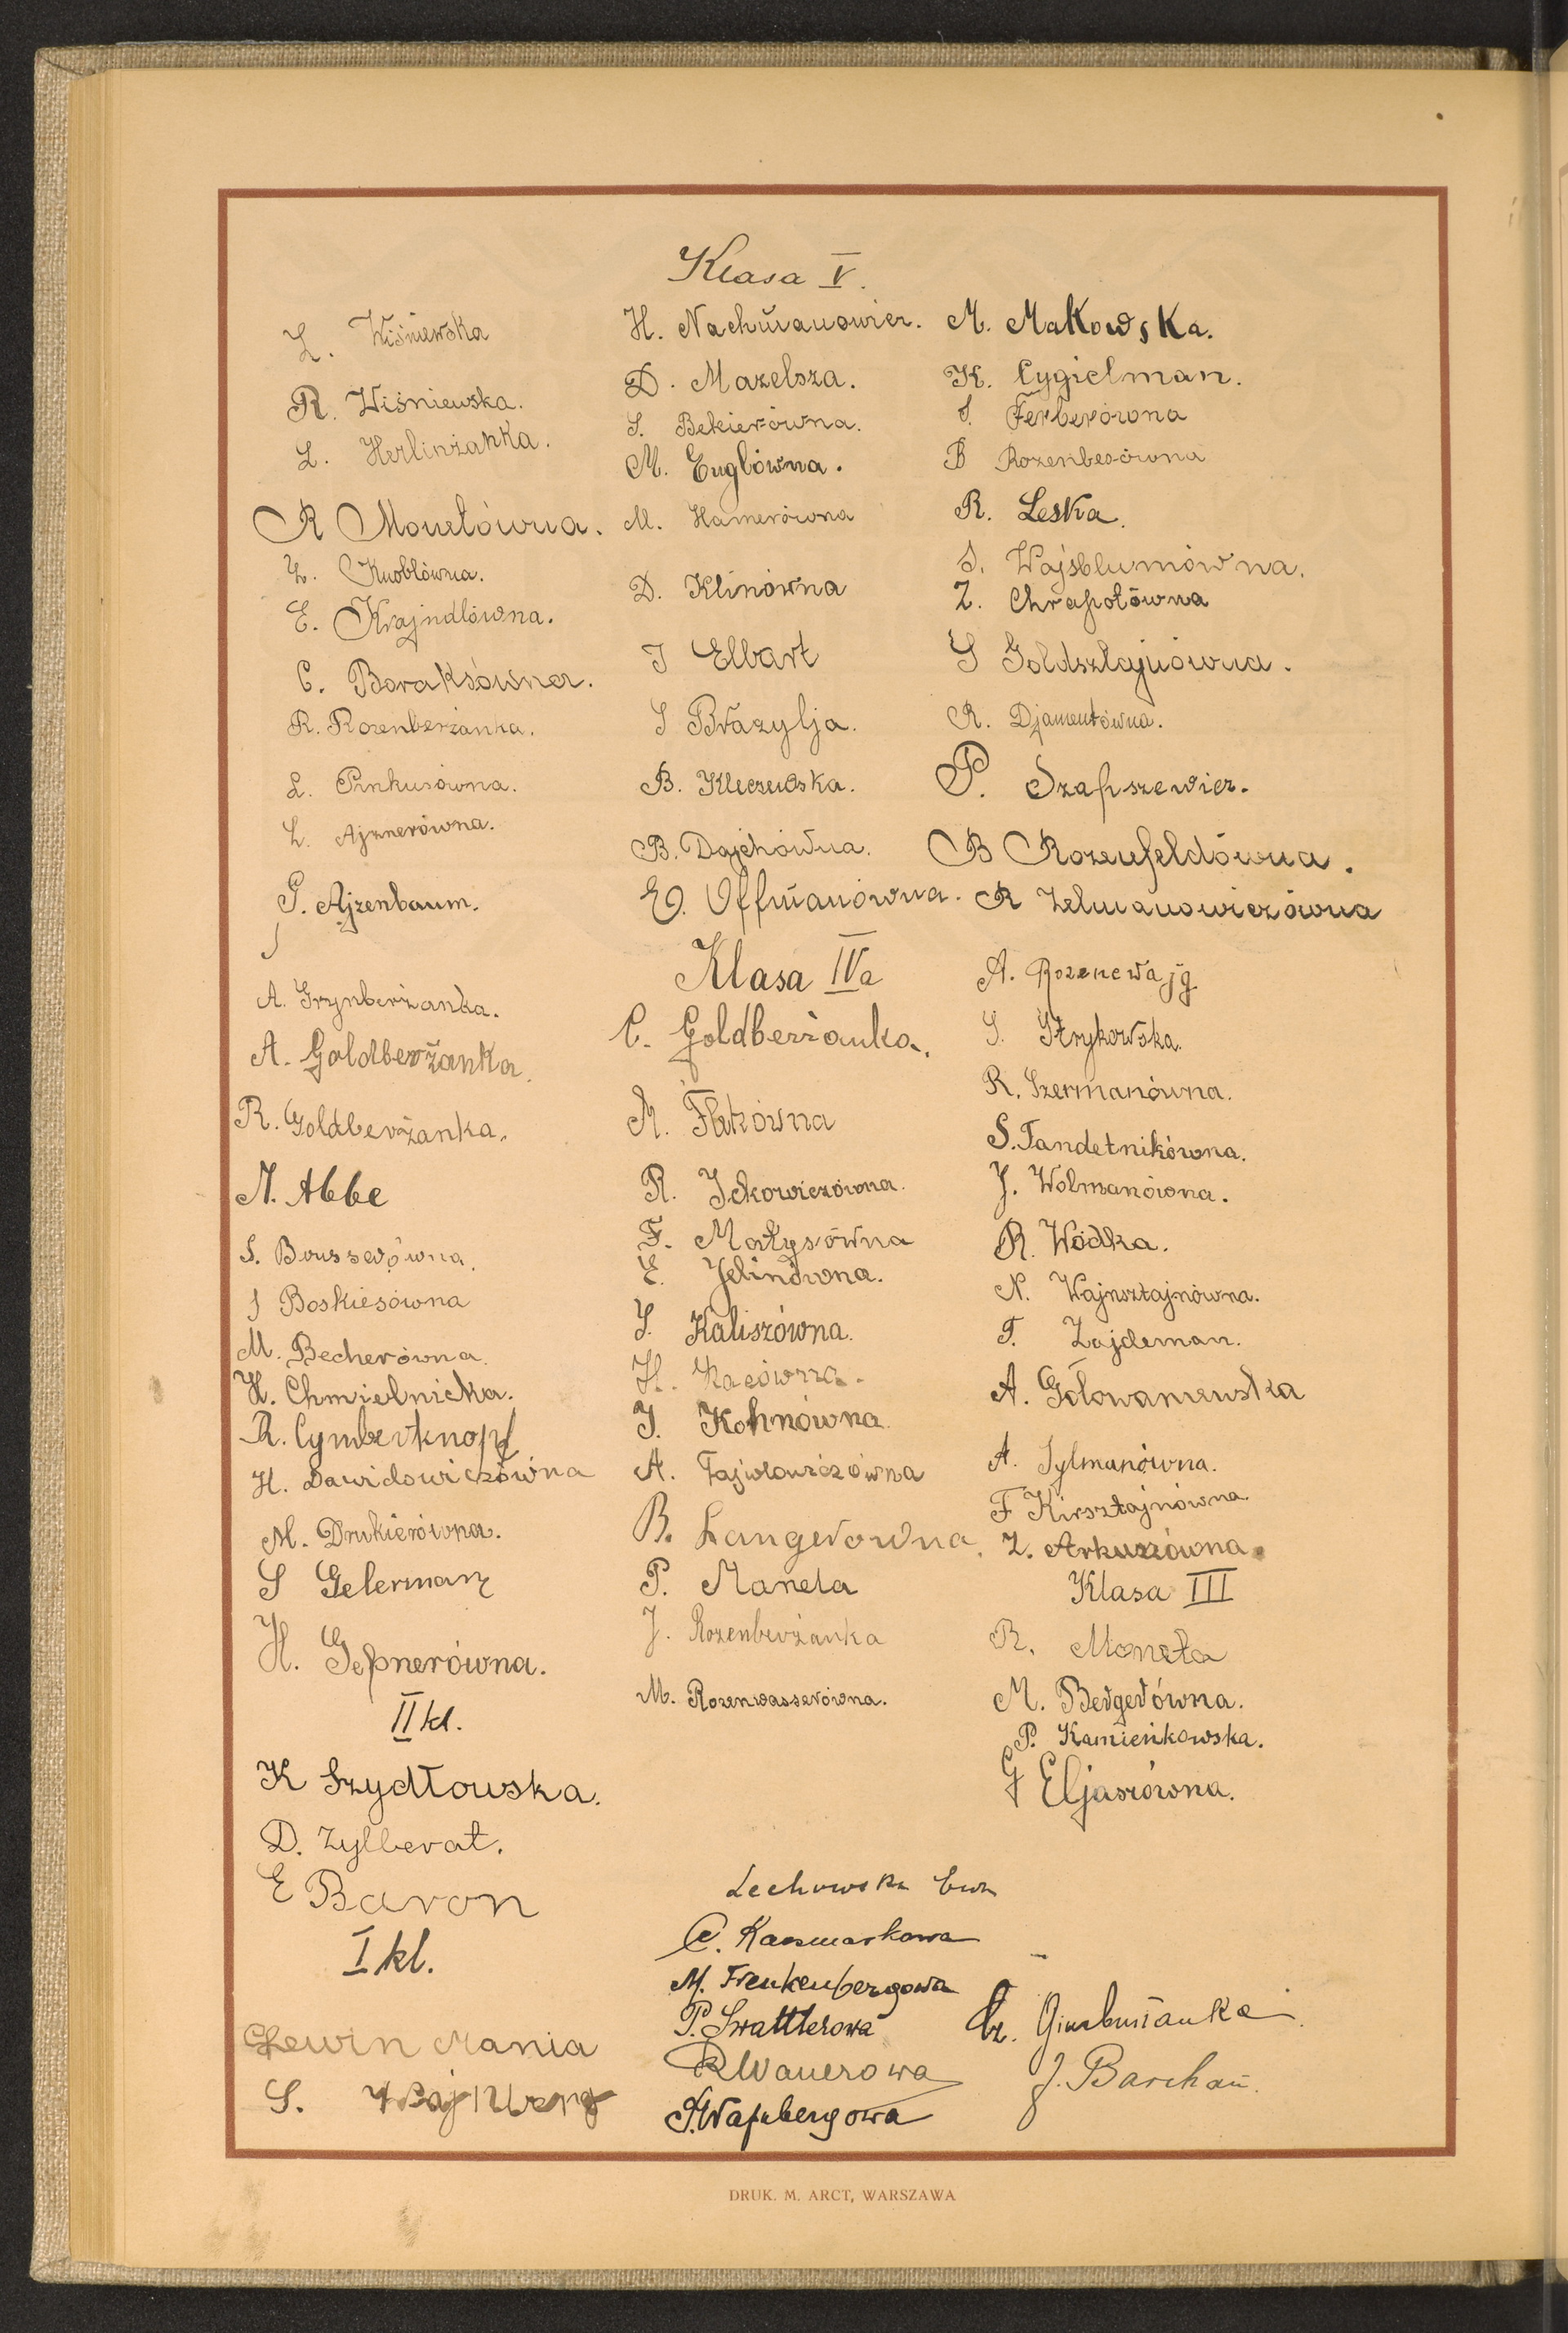 Klasa V.
L. Wiśniewska
R. Wiśniewska.
L. Herlinżanka.
R Monetówna.
L. Knoblówna.
E. Krajndlówna.
C. Boraksówna.
R. Rozenberżanka.
L. Pinkusówna.
L. Ajznerówna.
G. Ajzenbaum.
H. Nachmanowicz.
D. Mazelsza.
S. Bekierówna.
M. Englówna.
M. Hamerówna
D. Klinówna
J Elbart
S Brazylja.
B. Kleczewska.
B. Dajchówna.
E. Offmanówna.
M. Makowska.
K. Cygielman.
S. Ferberówna
B Rozenbesówna
R. Leska.
S. Wajsblumówna.
Z. Chrapotówna
S Goldsztajnówna.
R. Djamentówna.
P. Szapszewicz.
B Rozenfeldówna.
R Zelmanowiczówna
Klasa IVa
A. Grynberżanka.
A. Goldberżanka.
R. Goldberżanka.
N. Abbe
S. Bousserówna.
J Boskiesówna
M. Becherówna.
H. Chmielnicka.
R. Cymberknopf
H. Dawidowiczówna
M. Drukierówna.
S Gelerman
H. Gepnerówna.
C. Goldberżanka.
M. Flatówna
R. Ickowiczówna.
F. Małysówna
E. Jelinówna.
S. Kaliszówna.
H. Kacówna.
J. Kohnówna.
A. Fajwlowiczówna
B. Langerowna.
P. Manela
J. Rozenberżanka
M. Rozenwasserówna.
A. Rozencwajg
S. Strykowska.
R. Szermanówna.
S. Tandetnikówna.
J. Wolmanówna.
R. Wódka.
N. Wajnsztajnówna.
F. Zajdeman.
A. Gołowaniewska
A. Sylmanówna.
F Kirsztajnówna
Z. Arkuszówna.
Klasa III
R. Moneta
M. Bergerówna.
P. Kamieńkowska.
G Eljaszówna.
II kl.
K Szydłowska.
D. Zylberat.
E Baron
I kl.
Lewin Mania
S.
Lechowska Ewa
C. Kaczmarkowa
M. Frenkenbergowa
P. Swattlerowa
R Wauerowa
S. Wajnbergowa
J. Barchan.
DRUK. M. ARCT, WARSZAWA